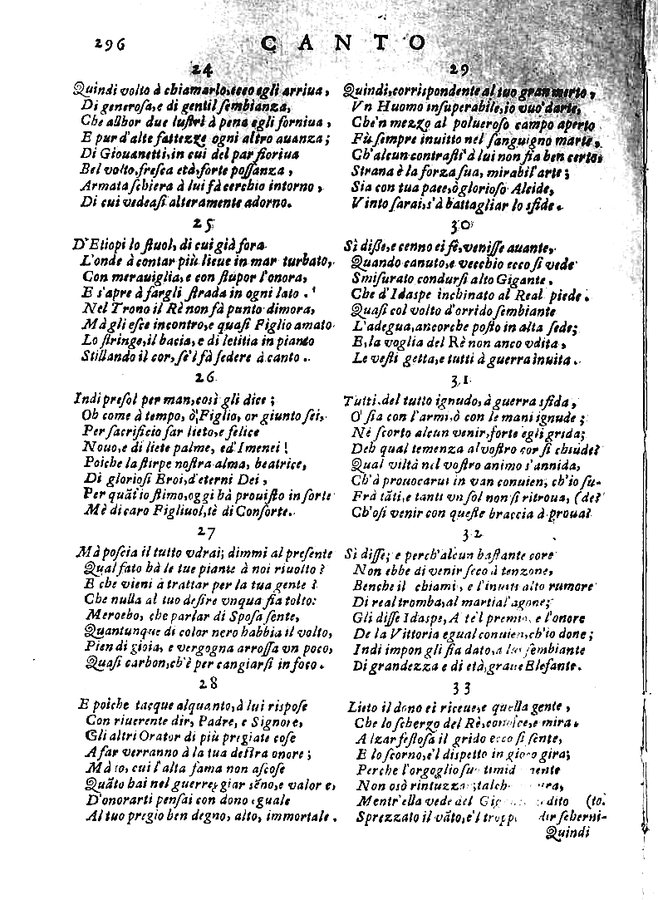 296 CANTO
24
Quindi volto à chiamarlo, ecco egli arriua,
Di generosa, e di gentil sembianza,
Che allhor due lustri à pena egli forniua,
E pur d'alte fattezze ogni altro auanza;
Di Giouanetti, in cui del par fioriua
Bel volto, fresca età, forte possanza,
Armata schiera à lui fà cerchio intorno,
Di cui vedeasi alteramente adorno.
25
D'Etiopi lo stuol, di cui già fora
L'onde à contar più lieue in mar turbato,
Con merauiglia, e con stupor l'onora,
E s'apre à fargli strada in ogni lato.
Nel Trono il Rè non fà punto dimora,
Mà gli esce incontro, e quasi Figlio amato
Lo stringe, il bacia, e di letitia in pianto
Stillando il cor, se'l fà sedere à canto.
26
Indi presol per man, così gli dice;
Oh come à tempo, ò Figlio, or giunto sei,
Per sacrificio far lieto, e felice
Nouo, e di liete palme, ed'Imenei!
Poiche la stirpe nostra alma, beatrice,
Di gloriosi Eroi, d'eterni Dei,
Per quãt'io stimo, oggi hà prouisto in sorte
Mè di caro Figliuol, tè di Consorte.
27
Mà poscia il tutto vdrai; dimmi al presente
Qual fato hà le tue piante à noi riuolto?
E che vieni à trattar per la tua gente?
Che nulla al tuo desire vnqua fia tolto:
Meroebo, che parlar di Sposa sente,
Quantunque di color nero habbia il volto,
Pien di gioia, e vergogna arrossa vn poco,
Quasi carbon, ch'è per cangiarsi in foco.
28
E poiche tacque alquanto, à lui rispose
Con riuerente dir, Padre, e Signore,
Gli altri Orator di più pregiate cose
A far verranno à la tua destra onore;
Mà io, cui l'alta fama non ascose
Quãto hai nel guerreggiar sẽno, e valore,
D'onorarti pensai con dono eguale
Al tuo pregio ben degno, alto, immortale.
29
Quindi, corrispondente al tuo gran merto,
Vn Huomo insuperabile, io vuo' darte,
Che'n mezzo al polueroso campo aperto
Fù sempre inuitto nel sanguigno marte,
Ch'alcun contrasti à lui non fia ben certo,
Strana è la forza sua, mirabil'arte;
Sia con tua pace, ò glorioso Alcide,
Vinto sarai, s'à battagliar lo sfide.
30
Sì disse, e cenno ei fè, venisse auante,
Quando canuto, e vecchio ecco si vede
Smisurato condursi alto Gigante.
Che d'Idaspe inchinato al Real piede.
Quasi col volto d'orrido sembiante
L'adegua, ancorche posto in alta sede;
E, la voglia del Rè non anco vdita,
Le vesti getta, e tutti à guerra inuita.
31
Tutti, del tutto ignudo, à guerra sfida,
O' sia con l'armi, ò con le mani ignude;
Nè scorto alcun venir, forte egli grida;
Deh qual temenza al vostro cor si chiude?
Qual viltà nel vostro animo s'annida,
Ch'à prouocarui in van conuien, ch'io su-
Frà tãti, e tanti vn sol non si ritroua, (de?
Ch'osi venir con queste braccia à proua?
32
Sì disse; e perch'alcun bastante core
Non ebbe di venir seco à tenzone,
Benche il chiami, e l'inuiti alto rumore
Di real tromba, al martial'agone;
Gli disse Idaspe, A te'l premio, e l'onore
De la Vittoria egual conuien, ch'io done;
Indi impon gli sia dato, a lui sembiante
Di grandezza e di età, graue Elefante.
33
Lieto il dono ei riceue, e quella gente,
Che lo scherzo del Rè, conosce, e mira.
Alzar festosa il grido ecco si sente,
E lo scorno, e'l dispetto in gioco gira;
Perche l'orgoglio
Non osò rintuzzar
Mentr'ella vede del (to.
Sprezzato il vãto, e'l scherni-
Quindi